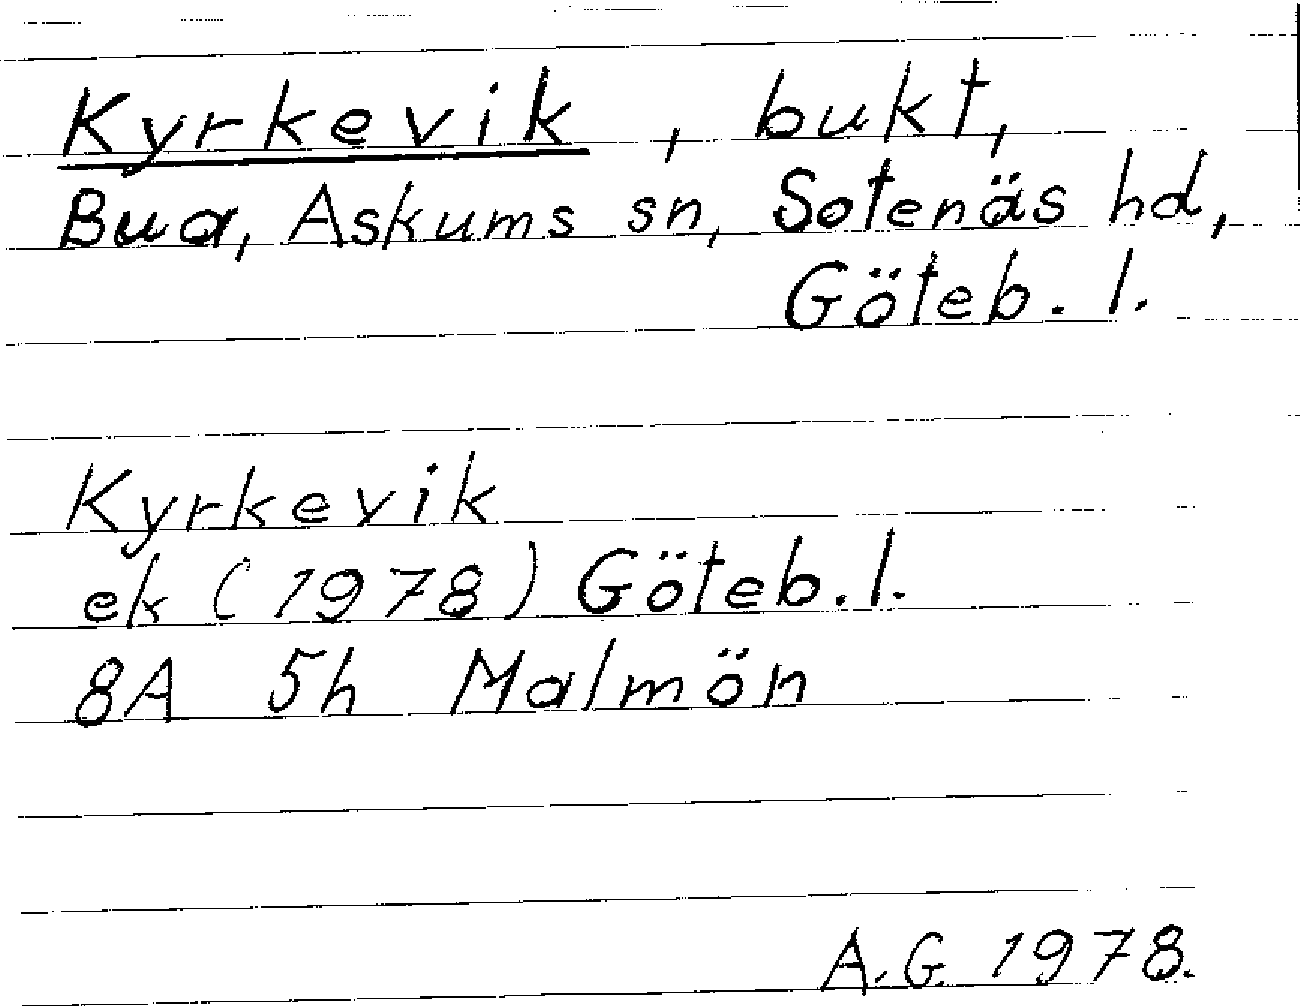 Kyrkevik, bukt,
Bua, Askums sn, Sotenäs hd,
Göteb. l.
Kyrkevik
ek (1978) Göteb. l.
8A 5h Malmön
A.G. 1978.